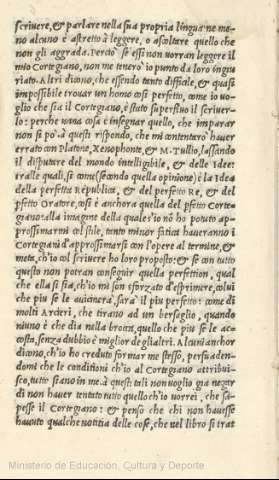 scriuere, & parlare nella sua propria lingua: ne me-
no alcuno è astretto à leggere, o ascoltare quello che
non gli aggrada. Perciò se essi non uorran leggere il
mio Cortegiano, non me tenerò io punto da loro ingiu
riato. Altri dicono, che essendo tanto difficile, & quasi
impossibile trouar un homo così perfetto, come io uo-
glio che sia il Cortegiano, è stato superfluo il scriuer-
lo: perche uana cosa è insegnar quello, che imparar
non si po. à questi rispondo, che mi contentarò hauer
errato con Platone, Xenophonte, & M. Tullio, lassando
il disputare del mondo intelligibile, & delle Idee:
tra lle quali, si come (secondo quella opinione) è la Idea
della perfetta Republica, & del perfetto Re, & del
pfetto Oratore, così è anchora quella del pfetto Corte
giano: alla imagine della quale s'io nõ ho potuto ap-
prossimarmi col stile, tanto minor fatica haueranno i
Cortegiani d'approssimarsi con l'opere al termine, &
meta, ch'io col scriuere ho loro proposto: & se con tutto
questo non potran conseguir quella perfettion, qual
che ella si sia, ch'io mi son sforzato d'esprimere, colui
che piu se le auicinarà, sarà il piu perfetto: come di
molti Arcieri, che tirano ad un berseglio, quando
niuno è che dia nella brocca, quello che piu se le ac-
costa, senza dubbio è miglior de gli altri. Alcuni anchor
dicono, ch'io ho creduto formar me stesso, persuaden-
domi che le conditioni ch'io al Cortegiano attribui-
sco, tutte siano in me. à questi tali non uoglio gia negar
di non hauer tentato tutto quello ch'io uorrei, che sa-
pesse il Cortegiano: & penso che chi non hauesse
hauuto qualche notitia delle cose, che nel libro si trat
Ministerio de Educación, Cultura y Deporte